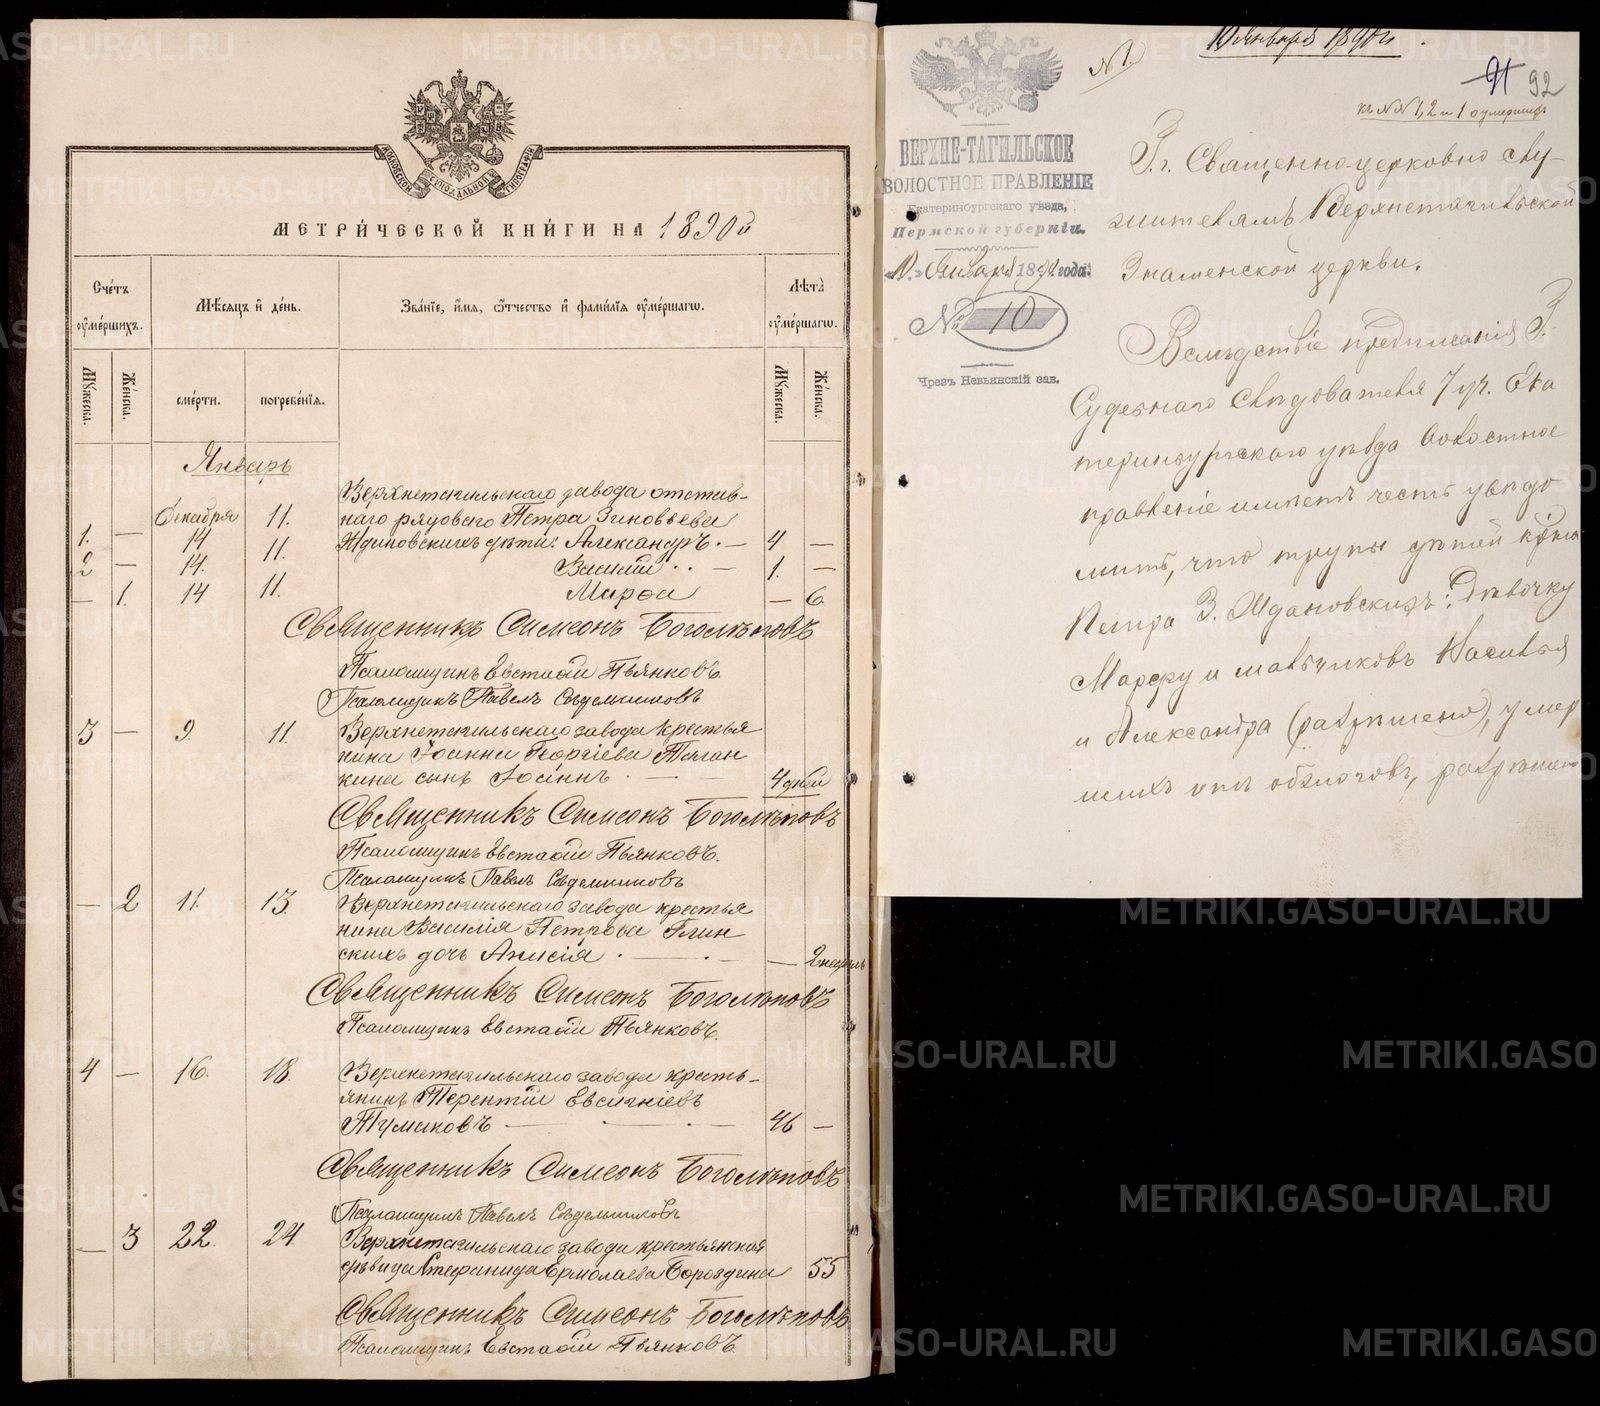 МОСКОВСКОЙ СУНОДАЛЬНОЙ ТИПОГРАФІИ
МЕТРИ́ЧЕСКОЙ КНИ́ГИ НА 1890 й
Сче́тъ ᲂу҆ме́ршихъ.
Мѣ́сяцъ и҆ де́нь.
Зва́нїе, и҆́мя, ѻ҆́тчество и҆ фами́лїя ᲂу҆ме́ршагѡ.
Лѣта̀ ᲂу҆ме́ршагѡ.
Мꙋ́жеска. Же́нска. сме́рти. погребе́нїя. Мꙋ́жеска. Же́нска.
Январь
Верхнетагильскаго завода отстав-
Декабря 11. наго рядоваго Петра Зиновьева
1. — 14 11. Ждановскихъ дѣти: Александръ. — 4 —
2 — 14. Василій . . — 1. —
— 1. 14 11. Марѳа — 6
Священникъ Симеонъ Боголѣповъ
Псаломщикъ Евстаѳій Пьянковъ.
Псаломщикъ Павелъ Сѣдельниковъ
3 — 9. 11. Верхнетагильскаго завода крестья
нина Іоанна Георгіева Таган
кина сынъ Іоаннъ . — — 4 дней
Священникъ Симеонъ Боголѣповъ
Псаломщикъ Евстаѳій Пьянковъ.
Псаломщикъ Павелъ Сѣдельниковъ
— 2 11. 13. Верхнетагильскаго завода крестья
нина Василія Петрова Глин
скихъ дочь Анисія . — . — — 2 недѣль
Священникъ Симеонъ Боголѣповъ
Псаломщикъ Евстаѳій Пьянковъ.
4 — 16. 18. Верхнетагильскаго завода кресть-
янинъ Терентій Евсигніевъ
Тумаковъ — . — . — 46 —
Священникъ Симеонъ Боголѣповъ
Псаломщикъ Павелъ Сѣдельниковъ
— 3 22. 24. Верхнетагильскаго завода крестьянская
дѣвица Стефанида Ермолаева Бороздина 55
Священникъ Симеонъ Боголѣповъ
Псаломщикъ Евстаѳій Пьянковъ.
10 января 1890 г.
№ 1.
91 92
къ №№ 1, 2 и 1 о умершихъ
ВЕРХНЕ-ТАГИЛЬСКОЕ
ВОЛОСТНОЕ ПРАВЛЕНІЕ
Екатеринбургскаго уѣзда,
Пермской губерніи.
«10» Января 1890 года.
№ 10
Чрезъ Невьянскій зав.
Г.г. Священно-церковно слу-
жителямъ Верхнетагильской
Знаменской церкви.
Вслѣдствіе предписанія Г.
Судебнаго Слѣдователя 7 уч. Ека
теринбургскаго уѣзда Волостное
правленіе имѣетъ честь увѣдо
мить, что трупы дѣтей
Петра З. Ждановскихъ: Дѣвочку
Марфу и мальчиковъ Василья
и Александра (разрѣшено), умер
шихъ отъ ожоговъ, разрѣшено
METRIKI.GASO-URAL.RU